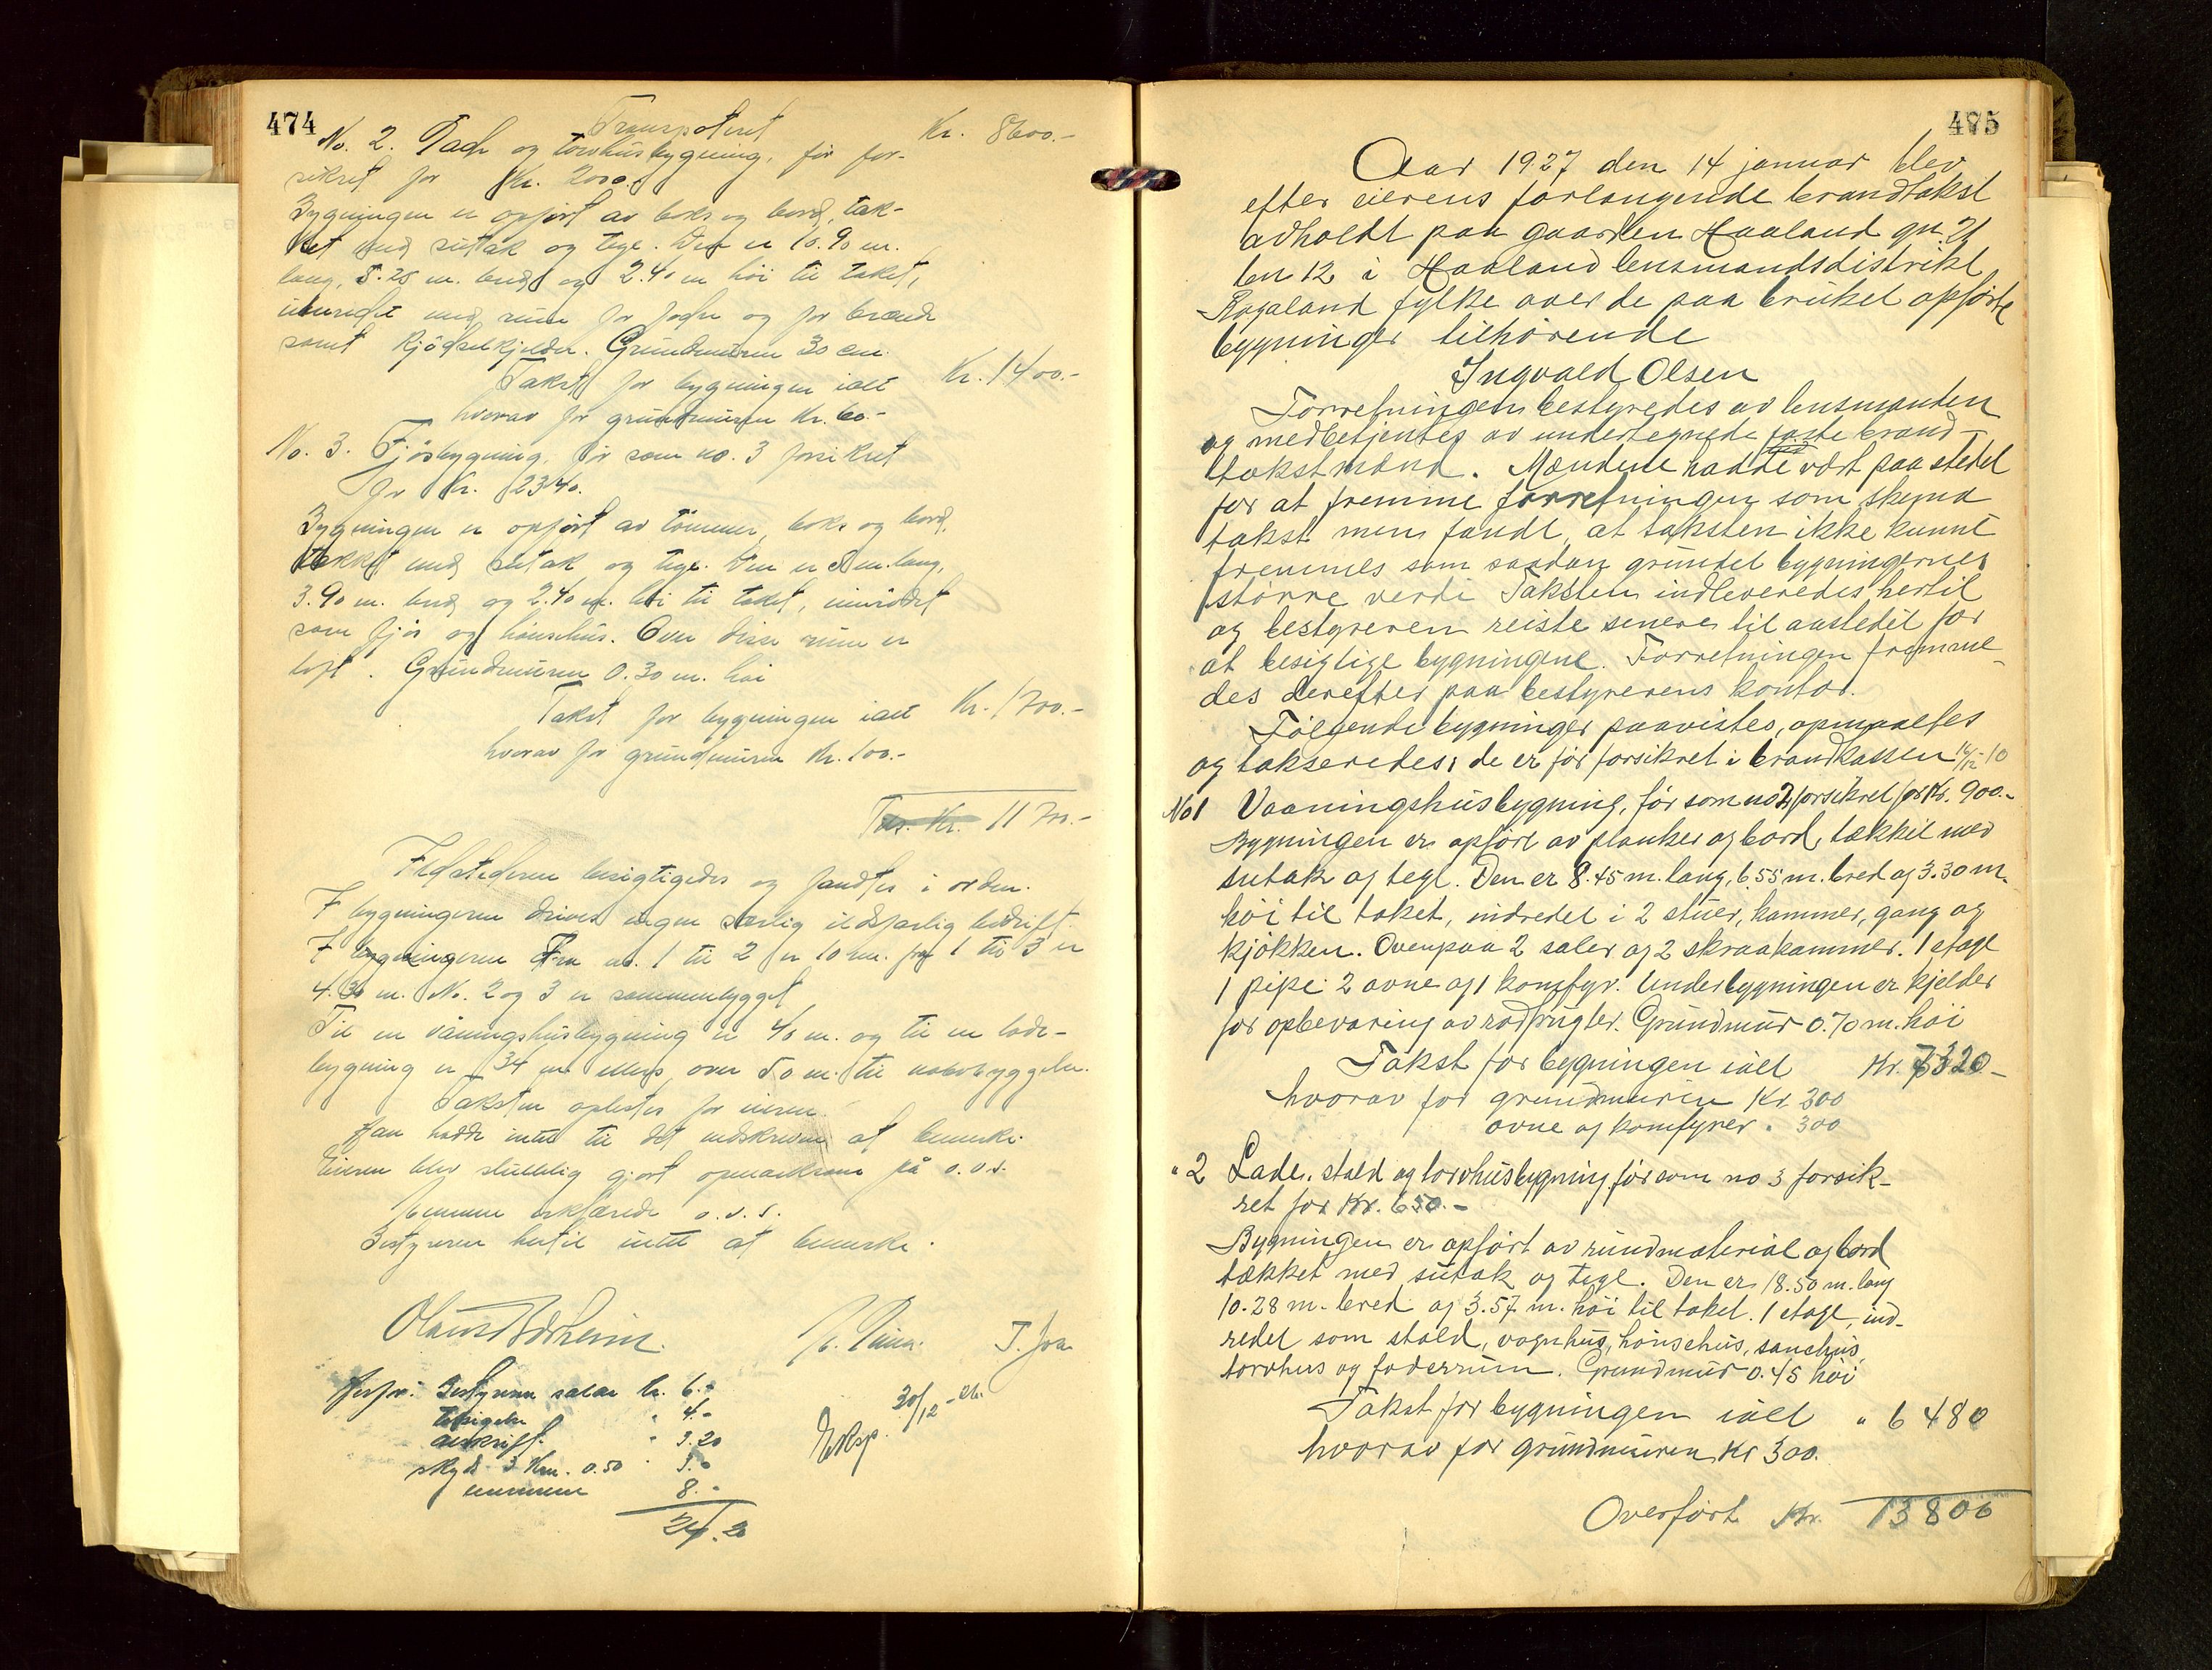 474
Transportert Kr. 8600.-
No. 2. og torvhusbygning, før for-
sikret for Kr. 2000.-
Bygningen er opført av boks og bord, tæk-
ket med sutak og tegl. Den er 10.90 m.
lang, 5.25 m. bred og 2.40 m høi til taket,
indredet med rum for foder og for brænde
samt kjødselkjelder. Grundmuren 30 cm.
Takst for bygningen ialt Kr. 1400.-
hvorav for grundmuren Kr. 60.-
No. 3. Fjøsbygning, før som no. 3 forsikret
for Kr. 2340.
Bygningen er opført av tømmer, boks og bord,
tekket med sutak og tegl. Den er 8 m. lang,
3.90 m. bred og 2.40 m. høi til taket, innredet
som fjøs og hønsehus. Over disse rum er
loft. Grundmuren 0.30 m. høi
Takst for bygningen ialt Kr. 1700.-
hvorav for grundmuren Kr. 100.-
Kr. 11700.-
Ildstederne besigtigedes og fandtes i orden.
I bygningerne drives ingen særlig ildsfarlig bedrift.
I bygningerne Fra no. 1 til 2 er 10 m. fra 1 til 3 er
4.30 m. No. 2 og 3 er sammenbygget
Til en våningshusbygning er 40 m. og til en lade-
bygning er 34 m ellers over 50 m. til nabobyggelse.
Taksten oplestes for eieren.
Han hadde intet til det indskrevne at bemerke.
Eieren blev skillelig gjort opmerksom på o.s.v.
erklærede o.s.v.
Bestyreren hertil intet at bemerke.
T. Joa
Bestyrerens salær kr. 6.-
" 4.-
avskrift " 3.20
skyds 3 Km. 0.50 " 3.-
8.-
24.20
Eksp. 30/12
475
Aar 1927 den 14 januar blev
efter eierens forlangende brandtakst
avholdt paa gaarden Haaland gn. 21
bn 12 i Haaland lensmandsdistrikt,
Rogaland fylke over de paa bruket opførte
bygninger tilhørende
Ingvald Olsen
Forretningen bestyredes av lensmanden
og medbetjentes av undertegnede faste brand-
takstmænd. Mændene hadde vært paa stedet
for at fremme forretningen som skema
takst men fandt, at taksten ikke kunne
fremmes som saadan grundet bygningernes
større verdi Taksten indleveredes hertil
og bestyreren reiste senere til aastedet for
at besigtige bygningene. Forretningen fremme-
des derefter paa bestyrerens kontor.
Følgende bygninger paavistes, opmaaltes
og takseredes; de er før forsikret i brandkassen 16/12-10
No 1 Vaaningshusbygning, før som no 2 forsikret for Kr. 900.-
Bygningen er opført av planker og bord, tækket med
sutak og tegl. Den er 8.45 m. lang, 6.55 m. bred og 3.30 m.
høi til taket, indredet i 2 stuer, kammer, gang og
kjøkken. Ovenpaa 2 saler og 2 skraakammer. 1 etage
1 pipe 2 ovne og 1 komfyr. Under bygningen er kjelder
for opbevaring av rodfrugter. Grundmur 0.70 m. høi
Takst for bygningen ialt Kr. 7320.-
hvorav for grundmuren Kr. 200
ovne og komfyrer " 300
" 2 Lade, stald og torvhusbygning, før som no 3 forsik-
ret for Kr. 650.-
Bygningen er opført av rundmaterial og bord
tækket med sutak og tegl. Den er 18.50 m. lang
10.28 m. bred og 3.57 m. høi til taket. 1 etage, ind-
redet som stald, vognhus, hønsehus, sauehus,
torvhus og foderrum. Grundmur 0.45 høi
Takst for bygningen ialt " 6480
hvorav for grundmuren Kr 300.
Overført Kr. 13800